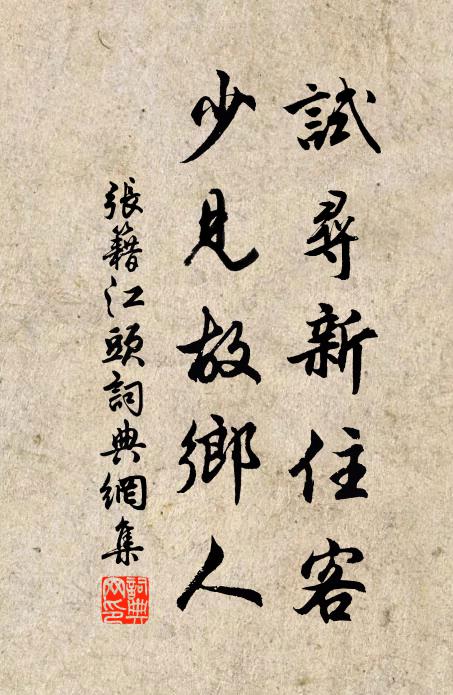 試尋新住客
少見故鄉人
張籍江頭詞典網集
詞典
网印